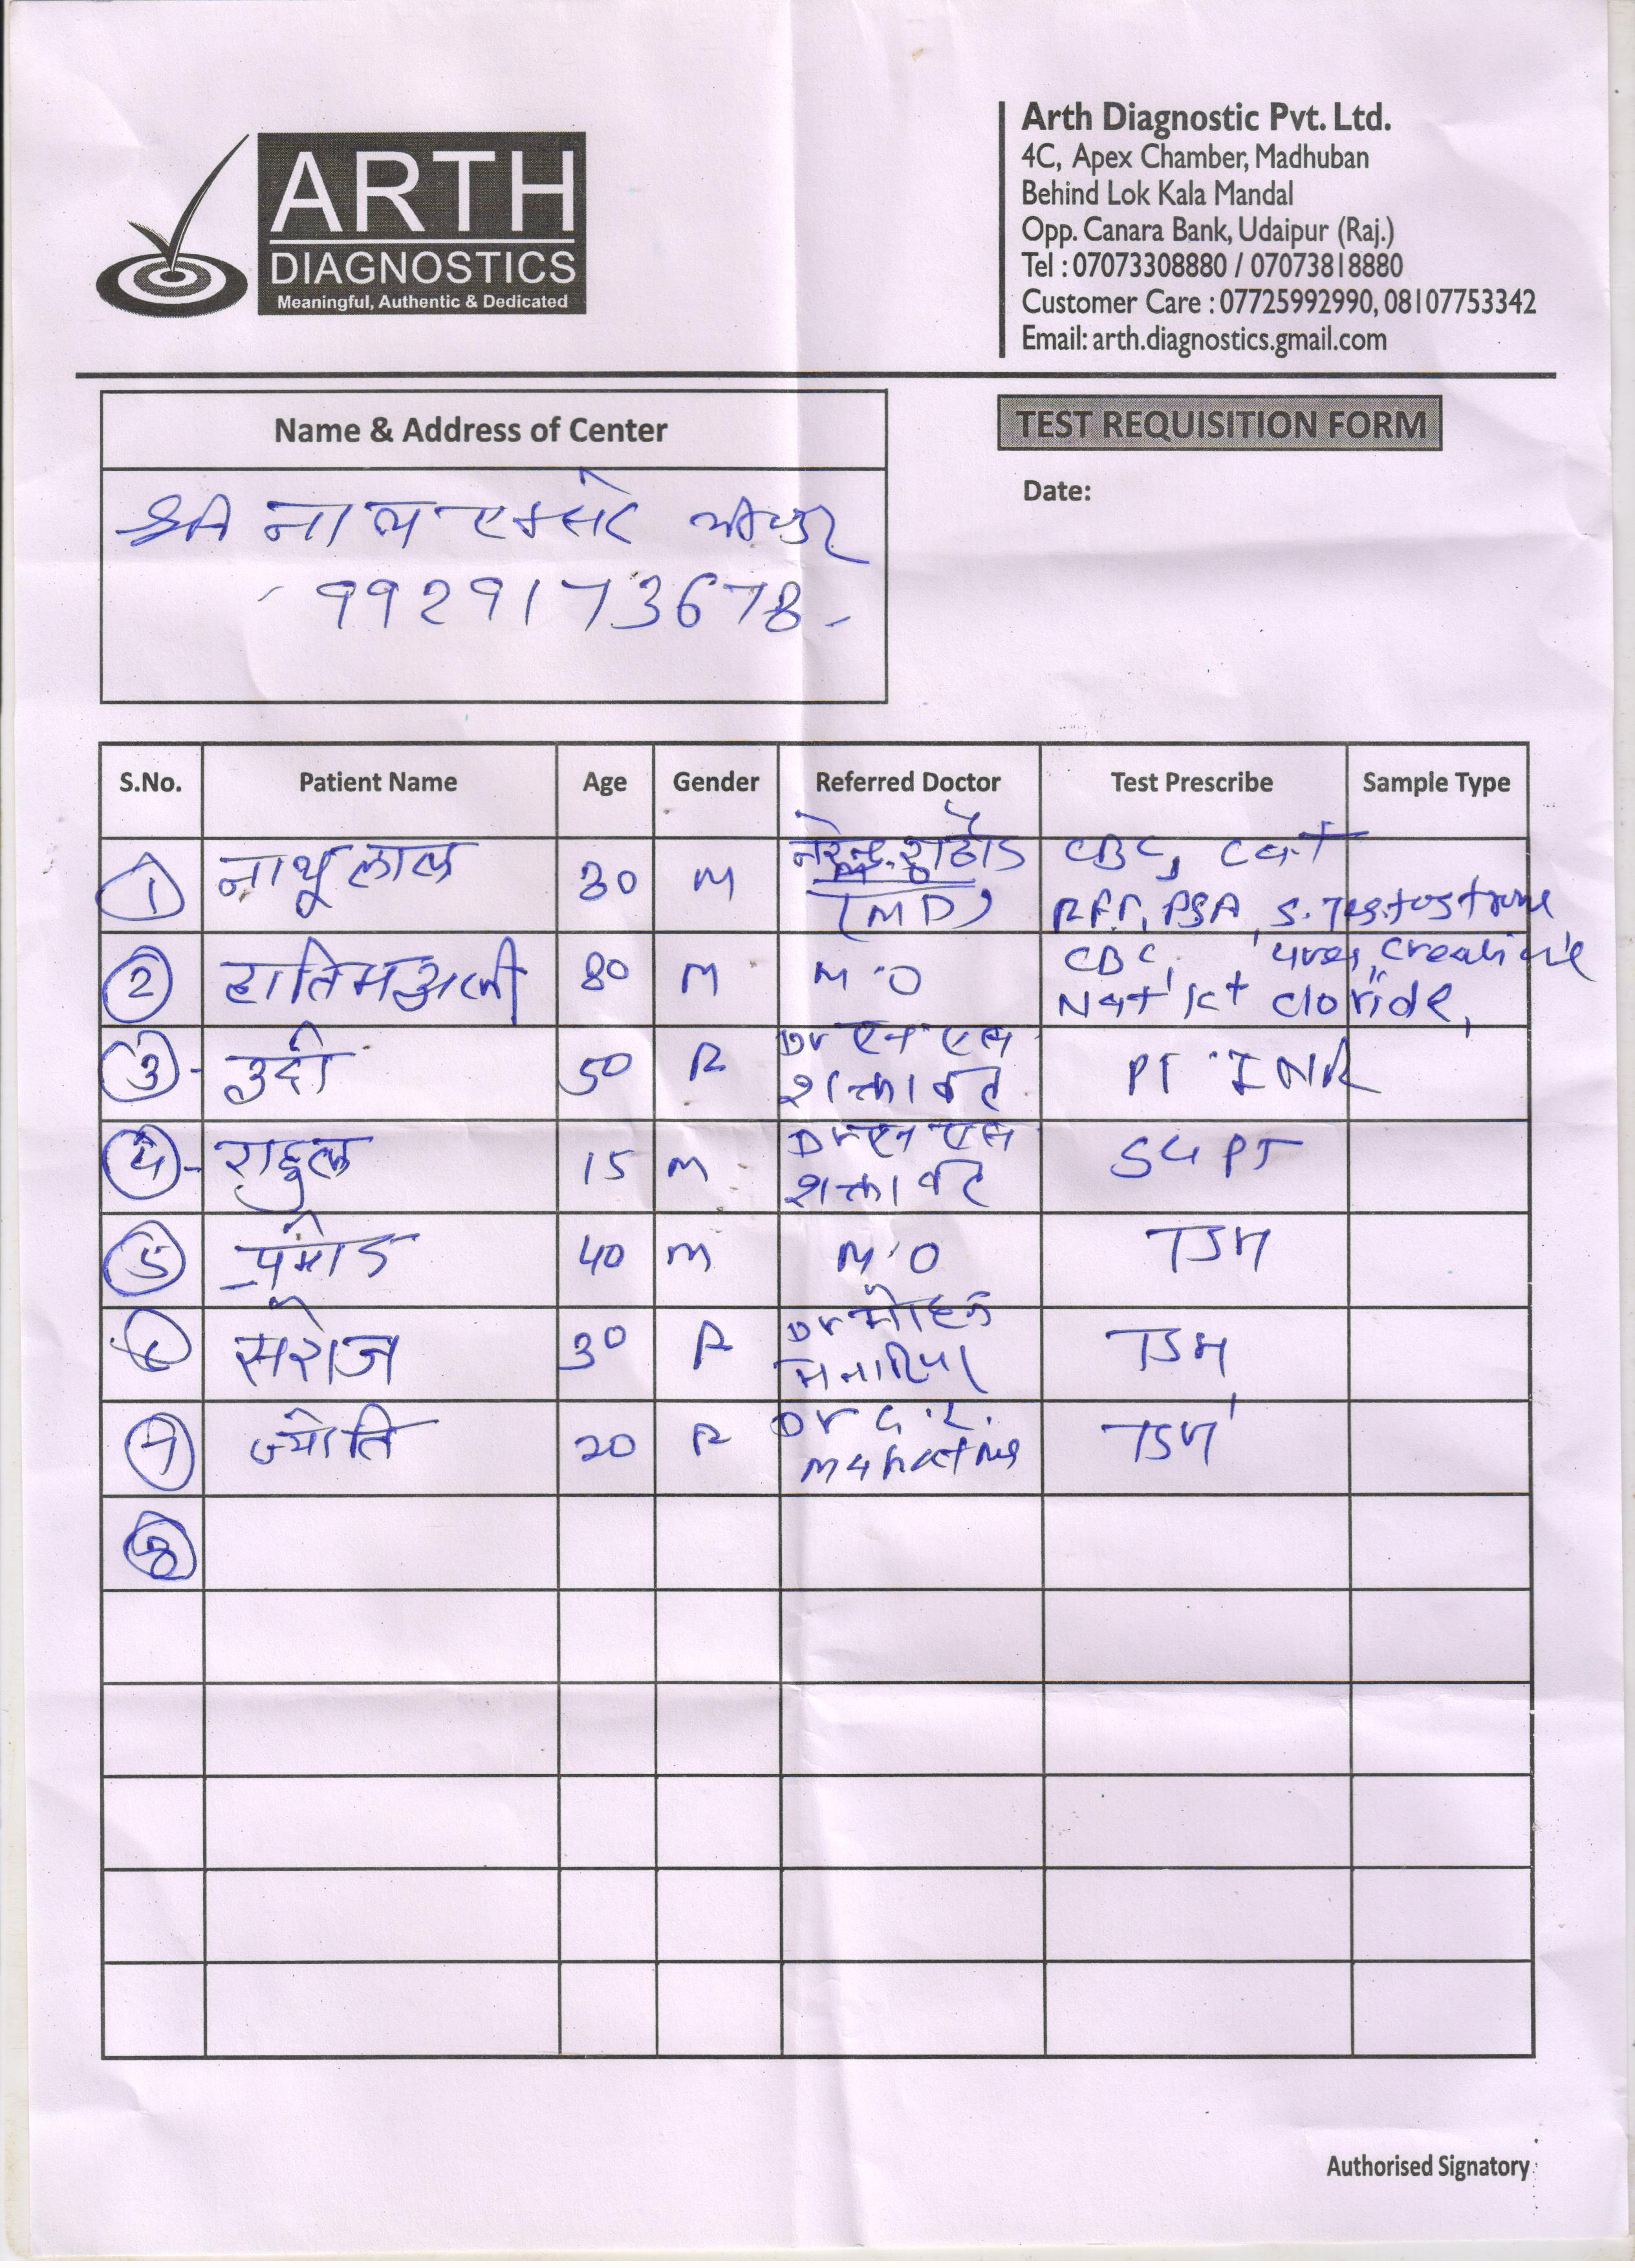 ARTH
DIAGNOSTICS
Meaningful, Authentic & Dedicated
Arth Diagnostic Pvt. Ltd.
4C, Apex Chamber, Madhuban
Behind Lok Kala Mandal
Opp. Canara Bank, Udaipur (Raj.)
Tel : 07073308880 / 07073818880
Customer Care : 07725992990, 08107753342
Email: arth.diagnostics.gmail.com
Name & Address of Center
श्री नाथ एक्सरे
9929173678
TEST REQUISITION FORM
Date:
S.No. Patient Name Age Gender Referred Doctor Test Prescribe Sample Type
1 नाथूलाल 30 M नरेन्द्र राठौड (MD) CBC, RFT, PSA, S. Testostrone
2 हातिमअली 80 M M.O CBC, urea, creatinine Na+ K+ cloride,
3 उदी 50 F Dr एन एस शक्तावत PT INR
4 राहुल 15 M Dr एन एस शक्तावत SGPT
5 40 M M.O TSH
6 सरोज 30 F Dr मोहन TSH
7 ज्योति 20 F Dr G.L. TSH
8
Authorised Signatory